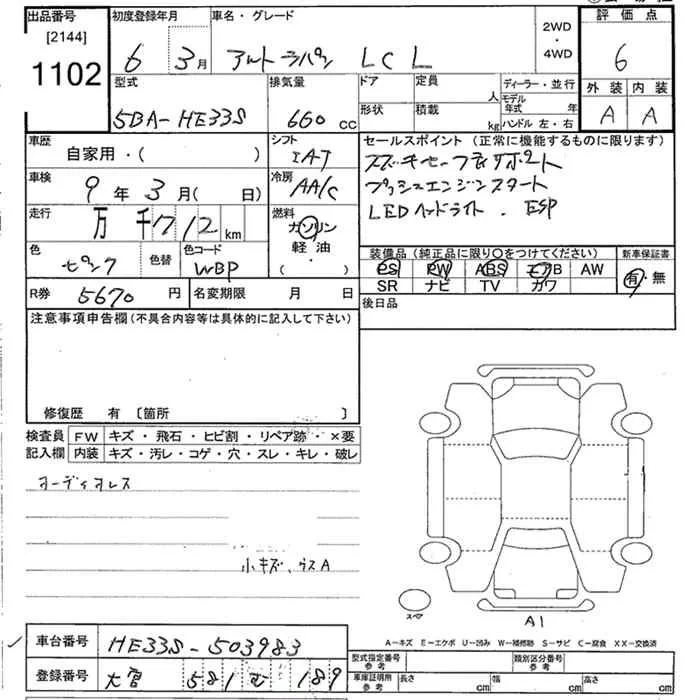 出品番号 初度登録年月 車名・グレード 2WD・4WD 評価点
[2144]
1102 6 3月 アルトラパン LCL 6
型式 排気量 ドア 定員 人 ディーラー・並行 外装 内装
5BA-HE33S 660 cc 形状 積載 kg モデル年式 年 ハンドル 左・右 A A
車歴 自家用・( ) シフト IAT セールスポイント (正常に機能するものに限ります)
車検 9年3月( 日) 冷房 AA/C スズキセーフティサポート
プッシュエンジンスタート
走行 万 千 712 km 燃料 ガソリン 軽油・( ) LEDヘッドライト . ESP
色 ピンク 色替 色コード WBP 装備品 (純正品に限り○をつけてください) 新車保証書
PS PW ABS エアB AW 有・無
SR ナビ TV カワ
R券 5670円 名変期限 月 日 後日品
注意事項申告欄 (不具合内容等は具体的に記入して下さい)
修復歴 有 〔箇所 〕
検査員 FW キズ・飛石・ヒビ割・リペア跡・×要
記入欄 内装 キズ・汚レ・コゲ・穴・スレ・キレ・破レ
オーディオレス
小キズ、ウスA
スペア A1
A-キズ E-エクボ U-凹み W-補修跡 S-サビ C-腐食 XX-交換済
車台番号 HE33S-503983 型式指定番号 参考 類別区分番号 参考
登録番号 大宮 581 む 189 車庫証明用 参考 長さ cm 幅 cm 高さ cm